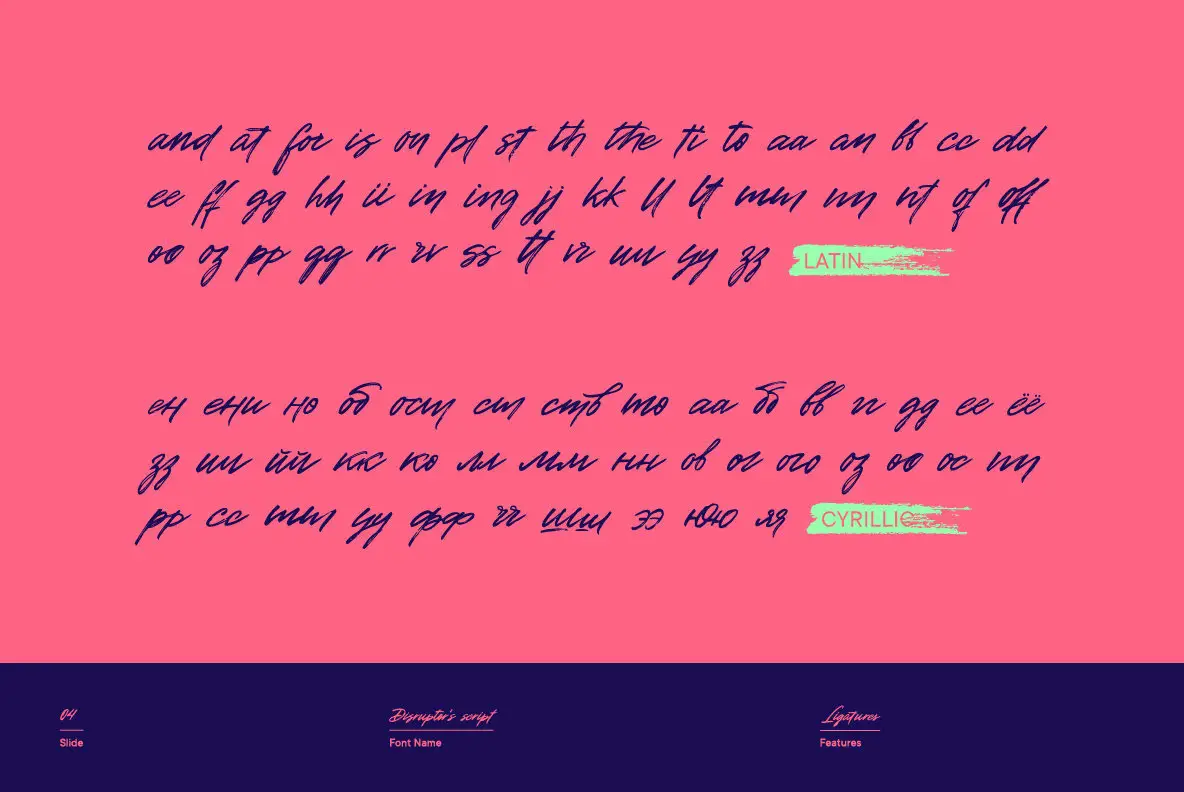 and at for is on pl st th the ti to aa an bb cc dd
ee ff gg hh ii in ing jj kk ll lt mm nn nt of off
oo oz pp qq rr rv ss tt vr uu yy zz LATIN
ен ени но об ост ст ств то аа бб вв гг дд ее ёё
зз ии йй кк ко лл мм нн ов ог ого оз оо ос пп
рр сс тт уу фф чч шш ээ юю яя CYRILLIC
04 Disruptor's script Ligatures
Slide Font Name Features